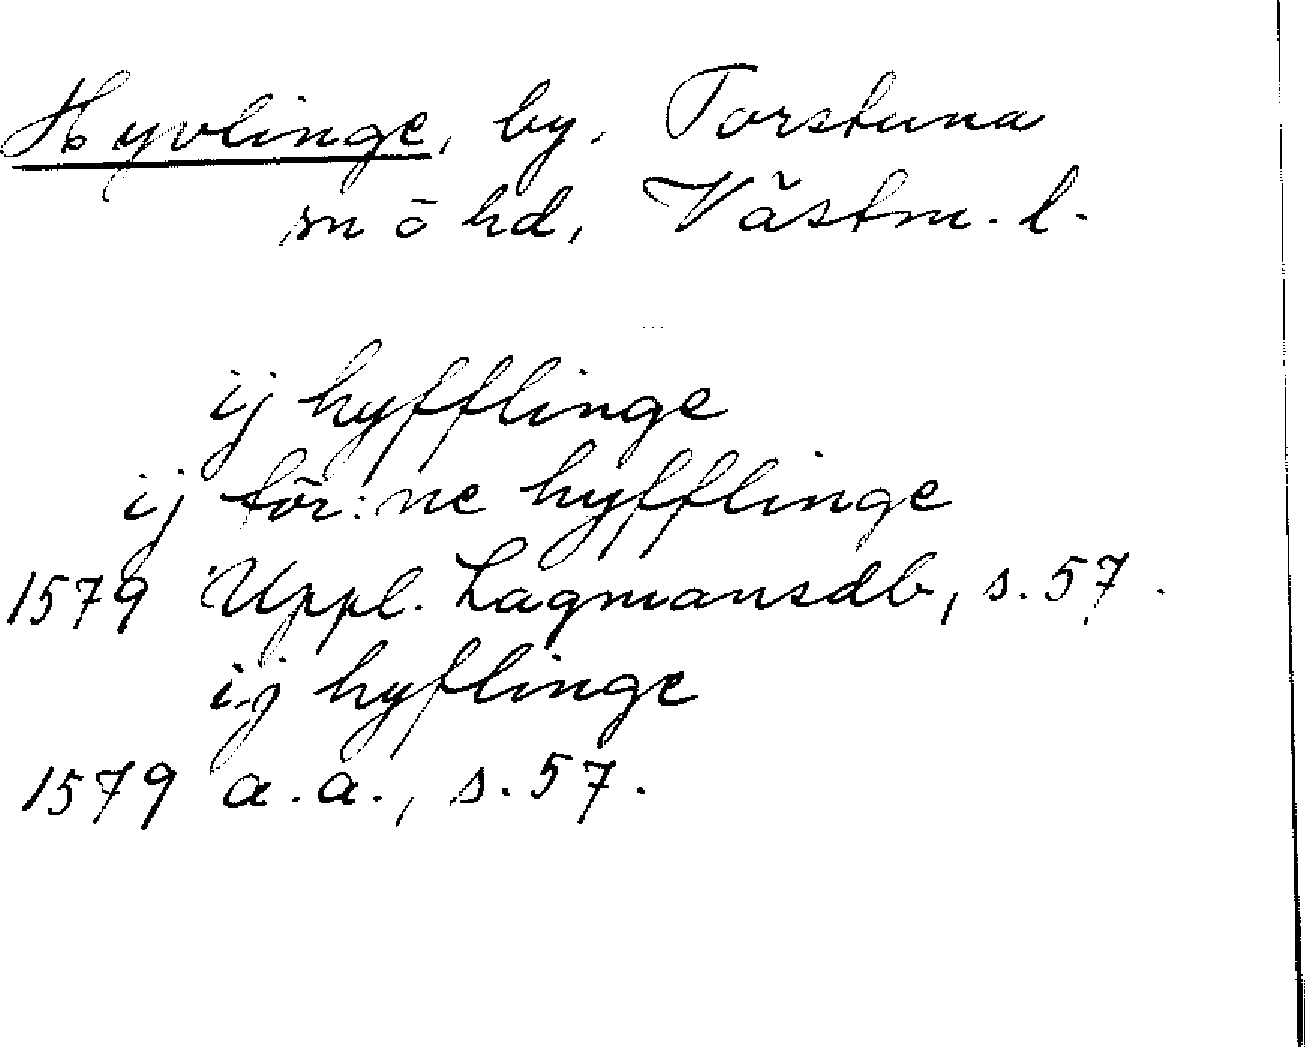 Hyvlinge, by, Torstuna
sn o hd, Västm. l.
ij hyfflinge
ij för:ne hyfflinge
1579 Uppl. Lagmansdb, s. 57.
ij hyflinge
1579 a.a., s. 57.